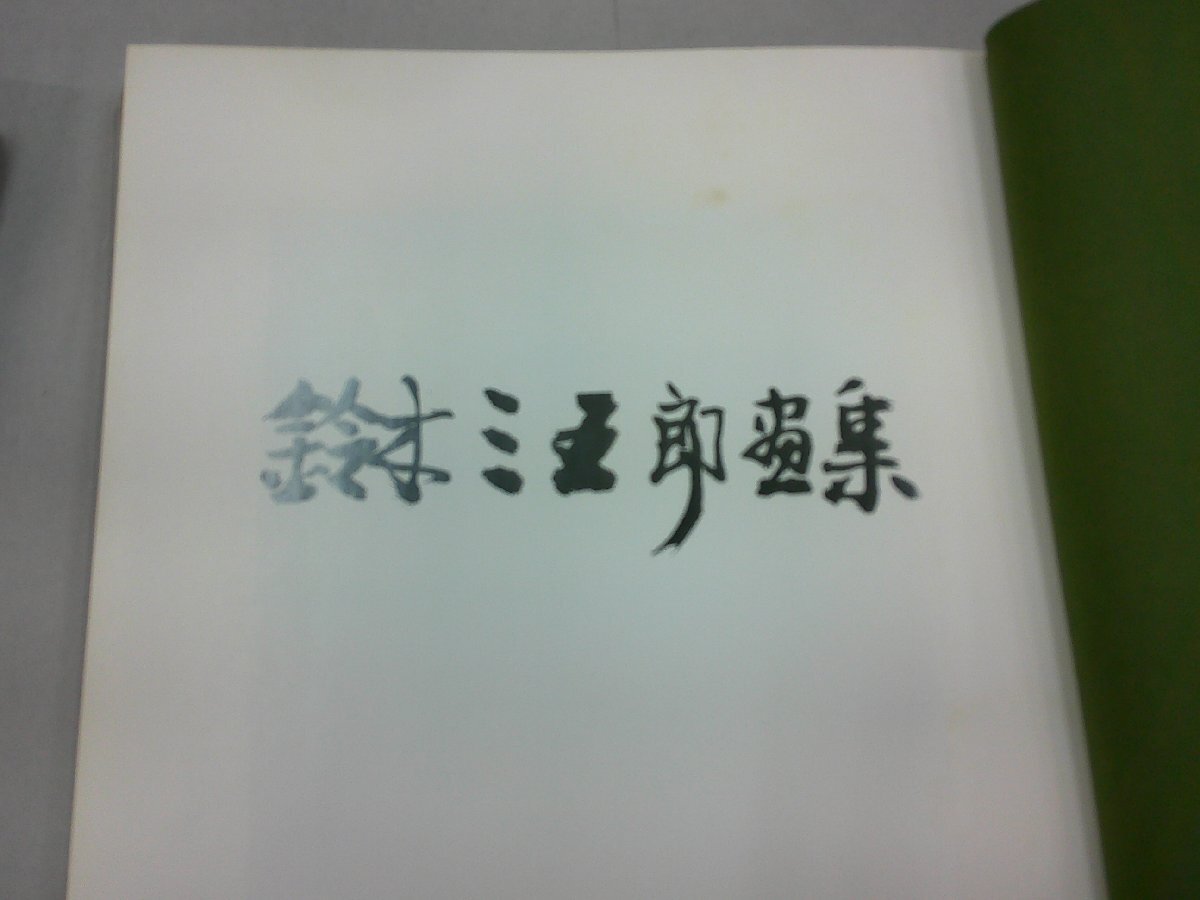 鈴木三五郎画集